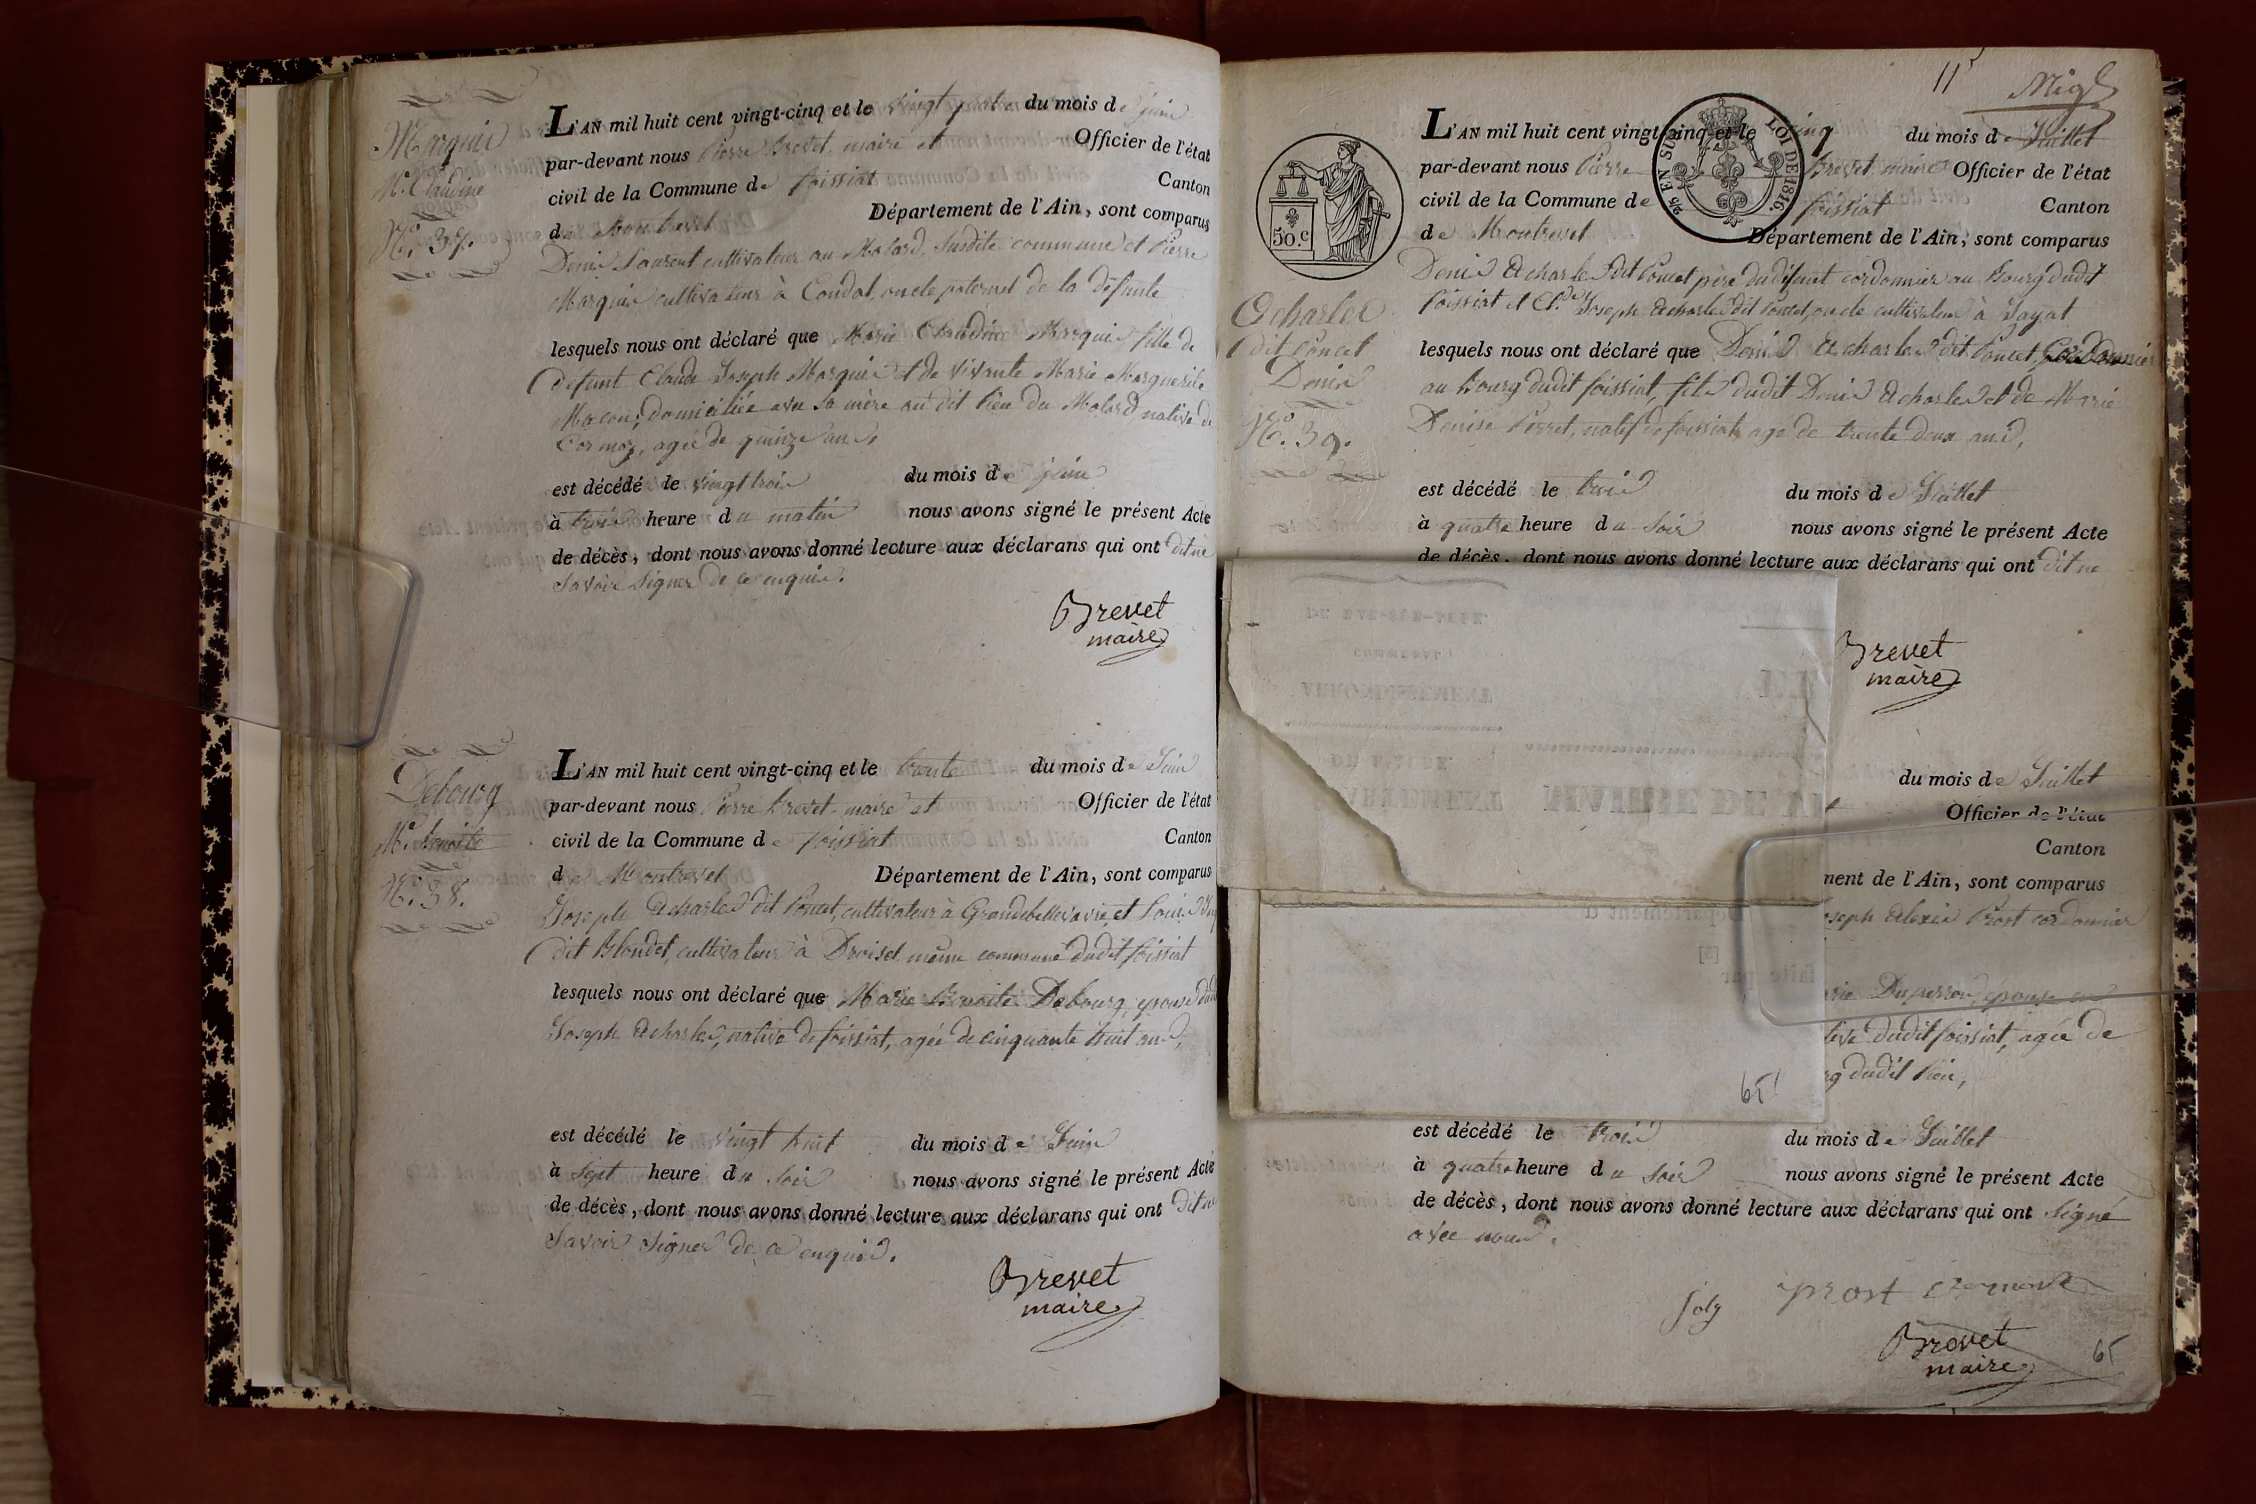 Marquis
M.e Claudine
N.o 37.
L'AN mil huit cent vingt-cinq et le vingt quatre du mois de juin
par-devant nous Pierre Brevet, maire et Officier de l'état
civil de la Commune de foissiat Canton
de Montrevel Département de l'Ain, sont comparus
Denis Laurent cultivateur au Molard, susdite commune et Pierre
Marquis cultivateur à Condal, oncle paternel de la défunte
lesquels nous ont déclaré que Marie Claudine Marquis fille de
défunt Claude Joseph Marquis et de vivante Marie Marguerite
Macon, domiciliée avec sa mère au dit lieu du Molard, native de
Cormoz, agée de quinze ans,
est décédé le vingt trois du mois de juin
à trois heure du matin nous avons signé le présent Acte
de décès, dont nous avons donné lecture aux déclarans qui ont dit ne
savoir signer de ce enquis.
Brevet
maire
Debourg
M.e Benoite
N.o 38.
L'AN mil huit cent vingt-cinq et le trente du mois de Juin
par-devant nous Pierre Brevet, maire et Officier de l'état
civil de la Commune de foissiat Canton
de Montrevel Département de l'Ain, sont comparus
Joseph Acharles dit Poncet, cultivateur à Grandebellevavre, et Louis
dit Blondet, cultivateur à Droiset même commune dudit foissiat
lesquels nous ont déclaré que Marie Benoite Debourg, epouse dudit
Joseph Acharles, native de foissiat, agée de cinquante huit ans,
est décédé le vingt huit du mois de Juin
à sept heure du soir nous avons signé le présent Acte
de décès, dont nous avons donné lecture aux déclarans qui ont dit ne
savoir signer de ce enquis.
Brevet
maire
11
50.c
EN SUS
LOI DE 1816.
Acharles
dit Poncet
Denis
N.o 39.
L'AN mil huit cent vingt-cinq et le cinq du mois de Juillet
par-devant nous Pierre Brevet, maire Officier de l'état
civil de la Commune de foissiat Canton
de Montrevel Département de l'Ain, sont comparus
Denis Acharles dit Poncet père du défunt cordonnier au Bourg dudit
foissiat et Cl.de Joseph Acharles dit Poncet, oncle cultivateur à Jayat
lesquels nous ont déclaré que Denis Acharles dit Poncet, Cordonnier
au Bourg dudit foissiat, fils dudit Denis Acharles et de Marie
Denise Perret, natif de foissiat, agé de trente deux ans,
est décédé le trois du mois de Juillet
à quatre heure du soir nous avons signé le présent Acte
de décès, dont nous avons donné lecture aux déclarans qui ont dit ne
Brevet
maire
du mois de Juillet
Officier de l'état
Canton
ment de l'Ain, sont comparus
oseph Alexis Prost cordonnier
arie Duperron, epouse en
tive dudit foissiat, agée de
rg dudit lieu,
65
est décédé le trois du mois de Juillet
à quatre heure du soir nous avons signé le présent Acte
de décès, dont nous avons donné lecture aux déclarans qui ont signé
avec nous.
Joly
prost
Brevet
maire
65